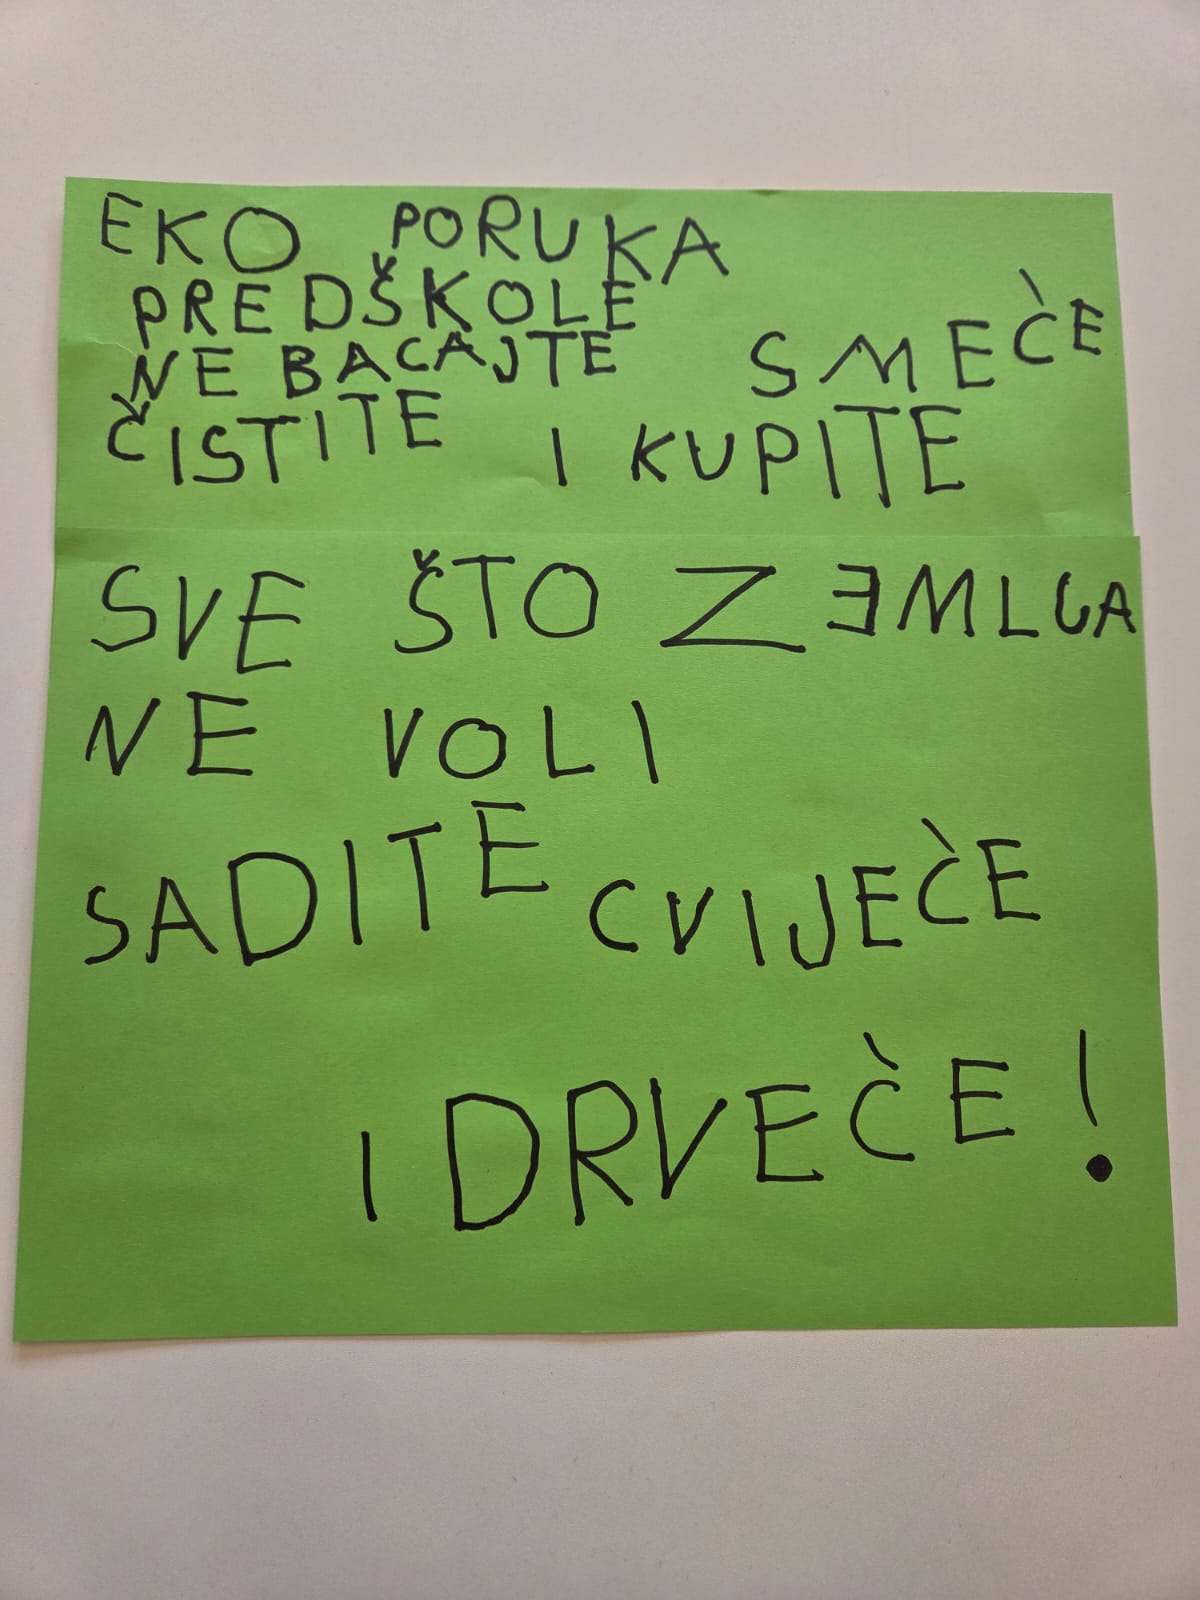 EKO PORUKA
PREDŠKOLE
NE BACAJTE SMEĆE
ČISTITE I KUPITE
SVE ŠTO ZEMLJA
NE VOLI
SADITE CVIJEĆE
I DRVEĆE!